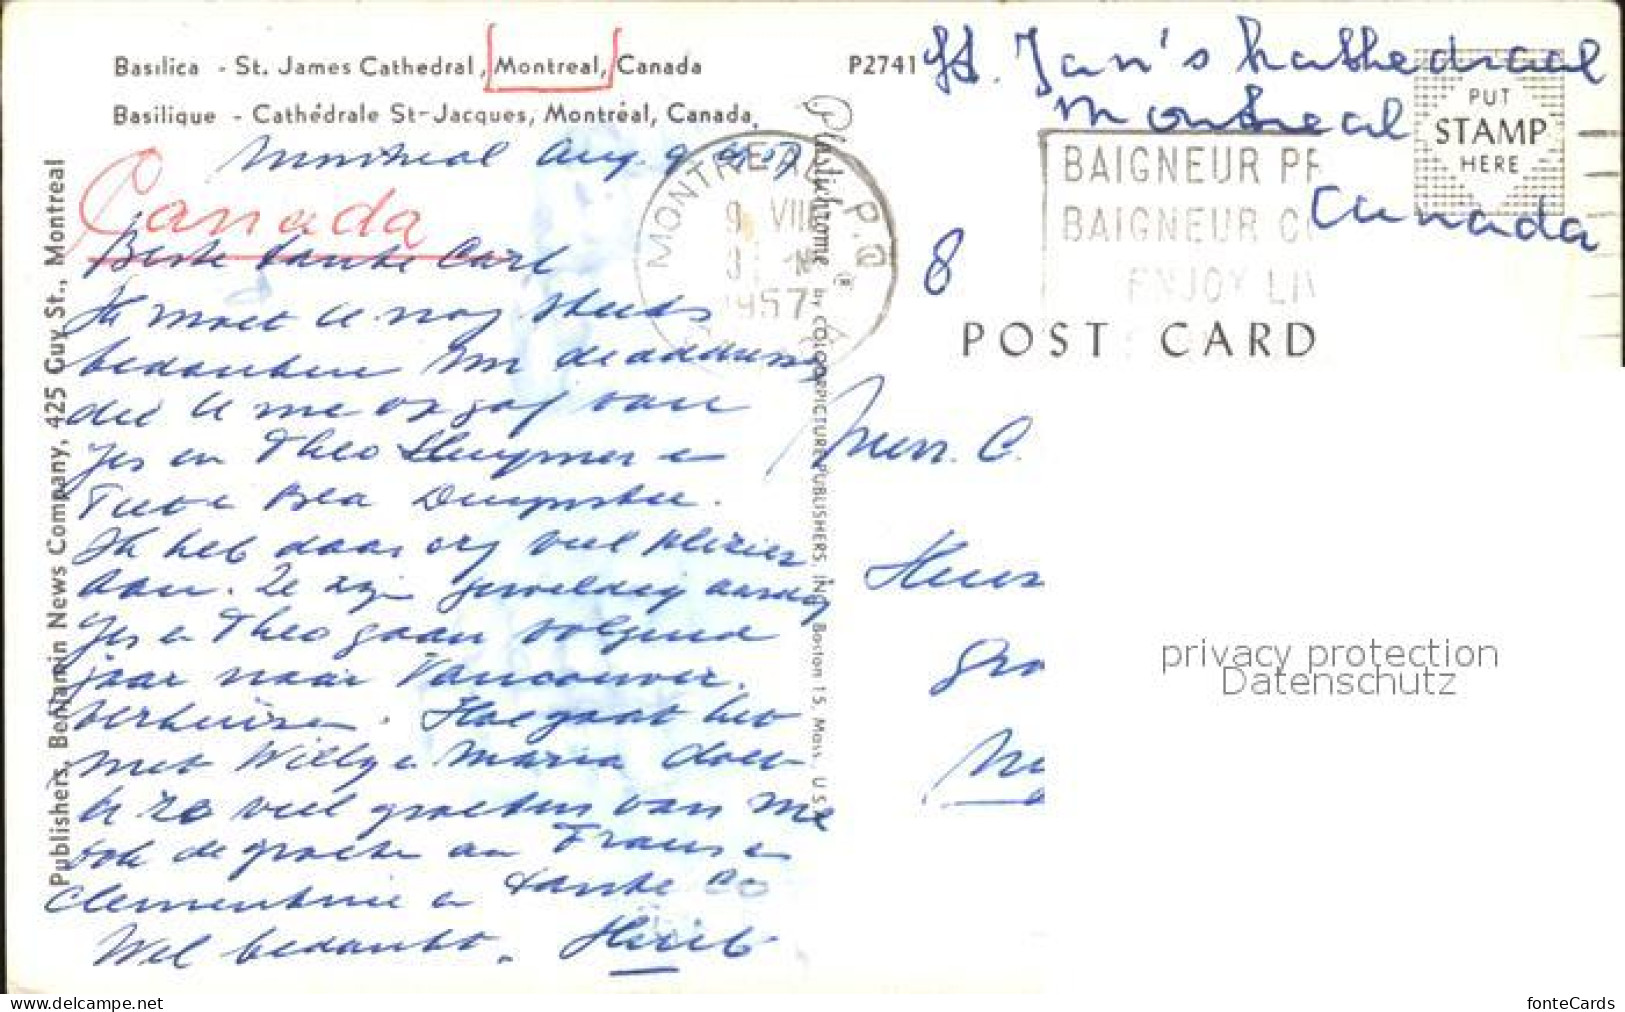 Basilica - St. James Cathedral, Montreal, Canada
Basilique - Cathédrale St-Jacques, Montréal, Canada.
P2741
St. Jan's kathedraal
Montreal
Canada
PUT
STAMP
HERE
MONTREAL P.Q.
9 VIII
1957
BAIGNEUR PR
BAIGNEUR C
ENJOY LIV
8
POST CARD
Canada
Montreal Aug. 9
Beste tante Carl
Ik moet U nog steeds
bedanken voor de address
die U me op gaf van
Jes en Theo
en Bea
Ik heb daar erg veel plezier
aan. Ze zijn geweldig aardig
Jes en Theo gaan volgend
jaar naar Vancouver.
verhuizen. Hoe gaat het
met Willy en Maria doet
U ze veel groeten van me
ook de groeten aan Frans en
Clementine en tante Co
Wel bedankt. Huub
Publishers, Benjamin News Company, 425 Guy St., Montreal
Plastichrome ® by COLOURPICTURE PUBLISHERS, INC., Boston 15, Mass., U.S.A.
Mevr. C.
privacy protection
Datenschutz
www.delcampe.net
fonteCards